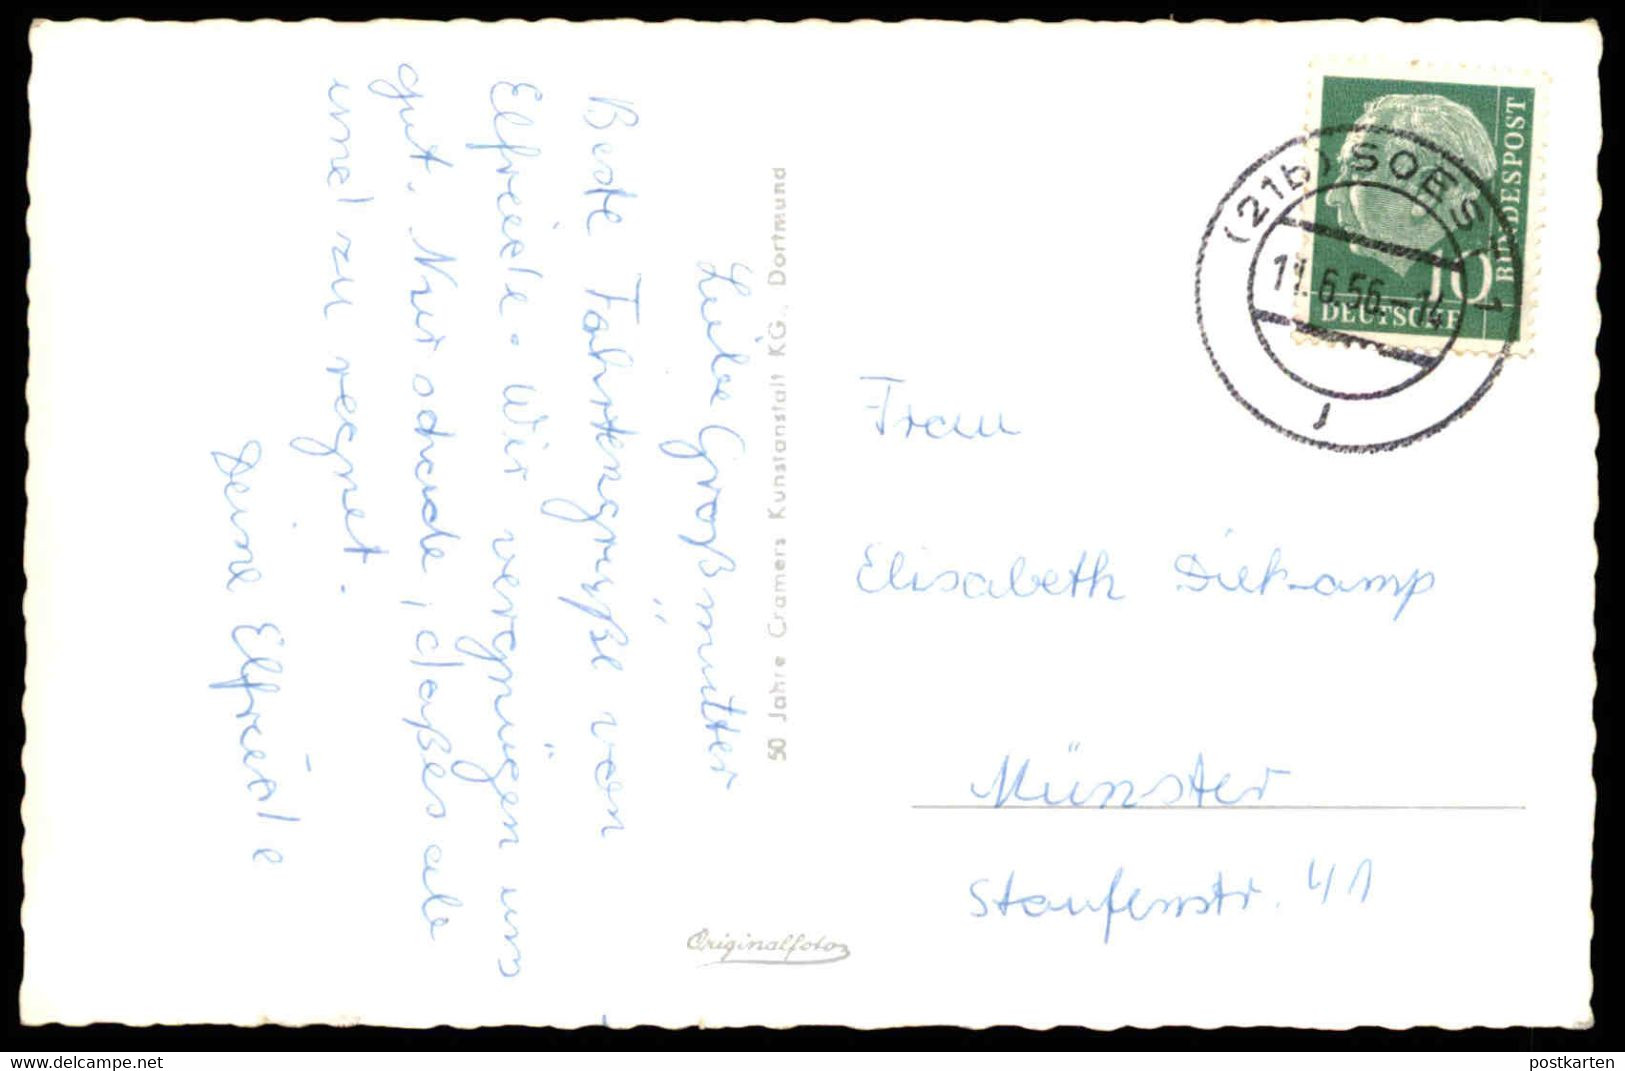 Liebe Großmutter
Beste Fahrtengrüße von
Elfriede. Wir vergnügen uns
gut. Nur schade, daß es ab
und zu regnet.
Deine Elfriede
50 Jahre Cramers Kunstanstalt KG., Dortmund
Originalfoto
DEUTSCHE
BUNDESPOST
10
(21b) SOEST 1
11.6.56.-14
J
Frau
Elisabeth Diekamp
Münster
Staufenstr. 41
https://www.delcampe.net
postkarten